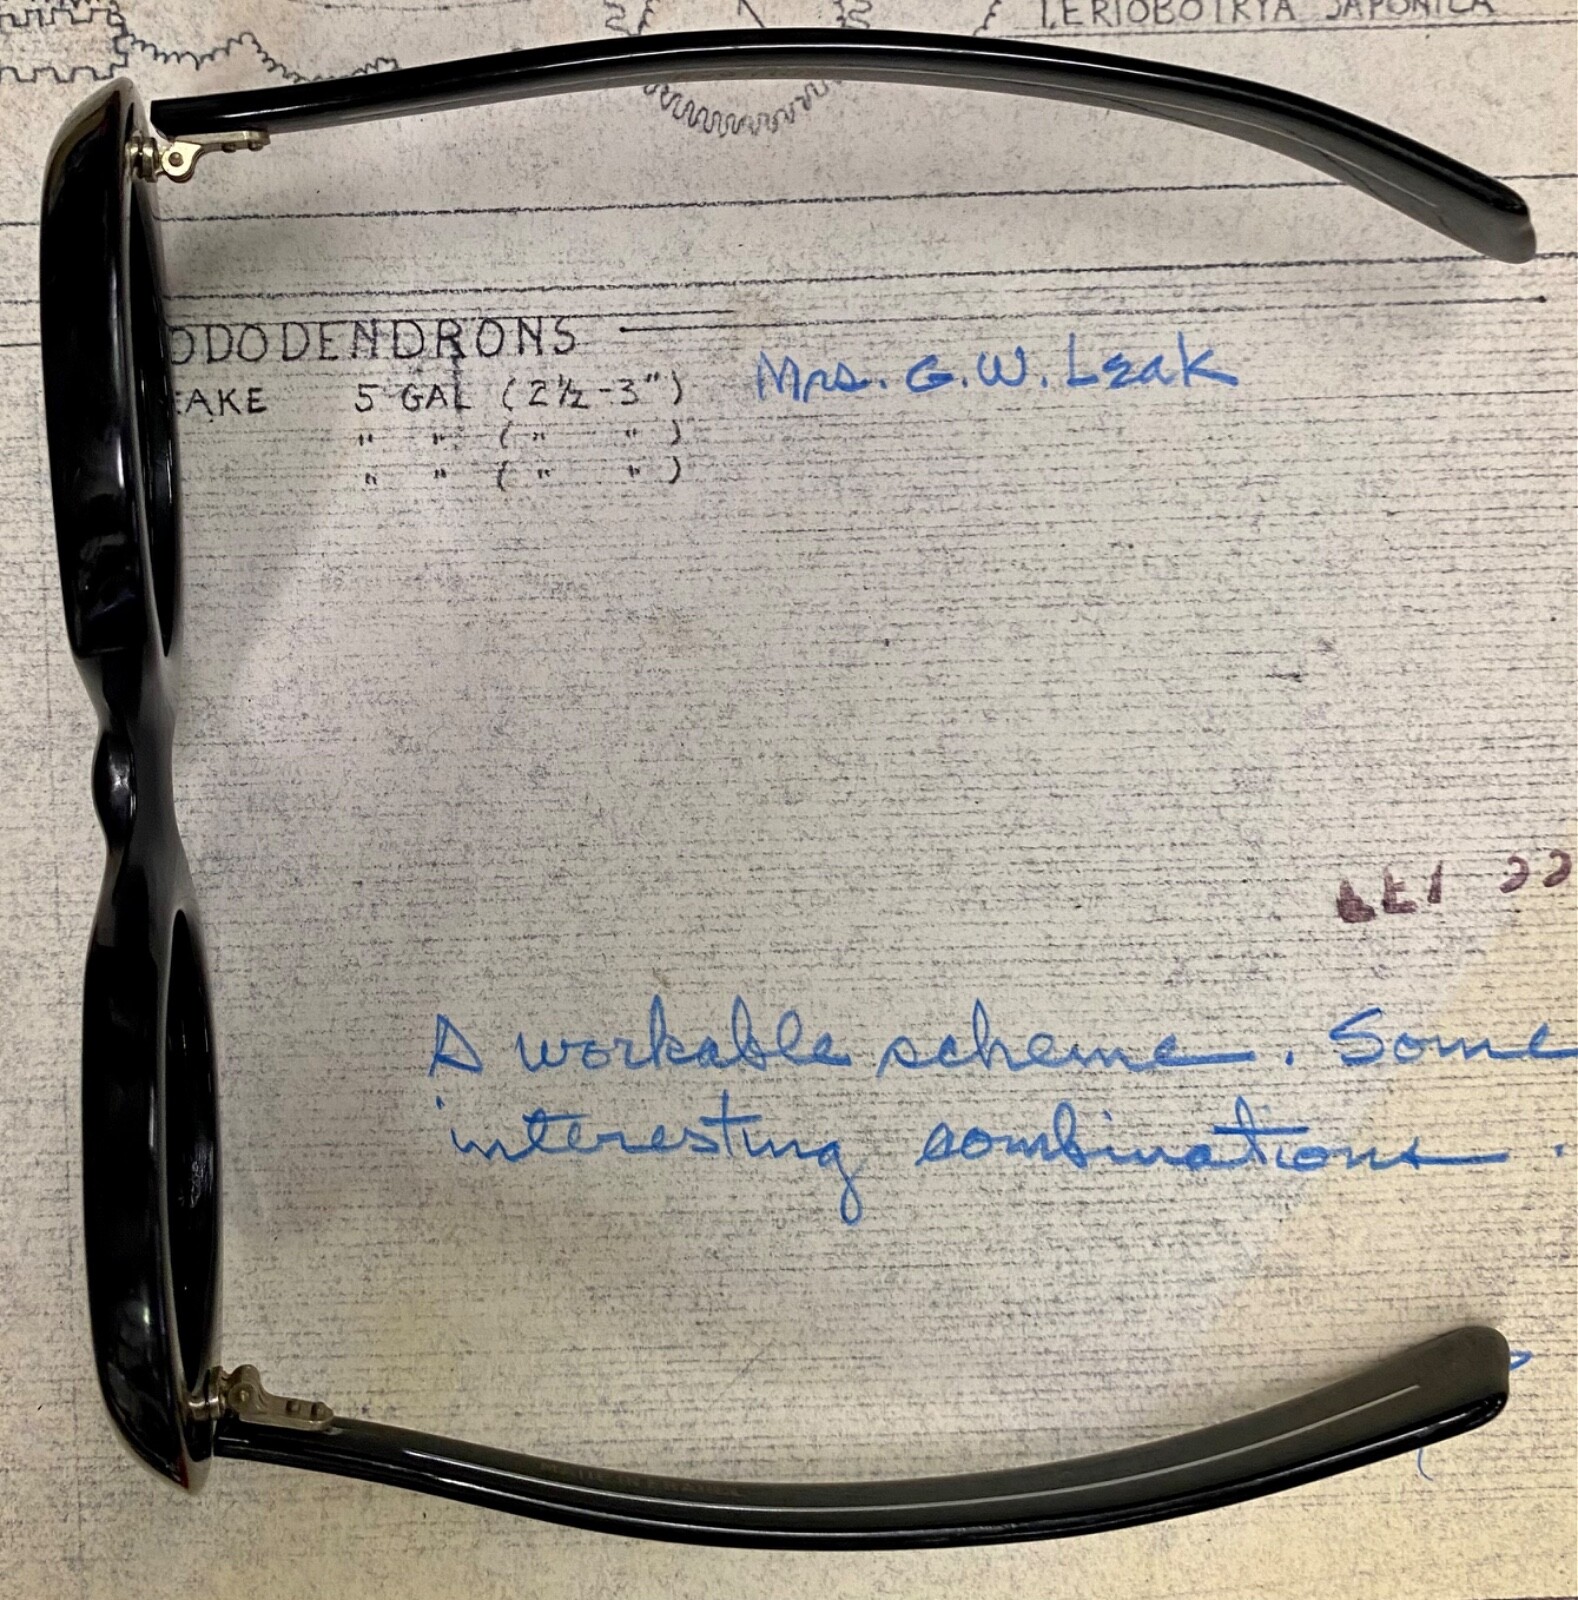 1. ERIOBOTRYA JAPONICA
ODODENDRONS
EAKE 5 GAL (2½-3")
" " ( " " )
" " ( " " )
Mrs. G.W. Leak
A workable scheme. Some
interesting combinations.
MADE IN FRANCE